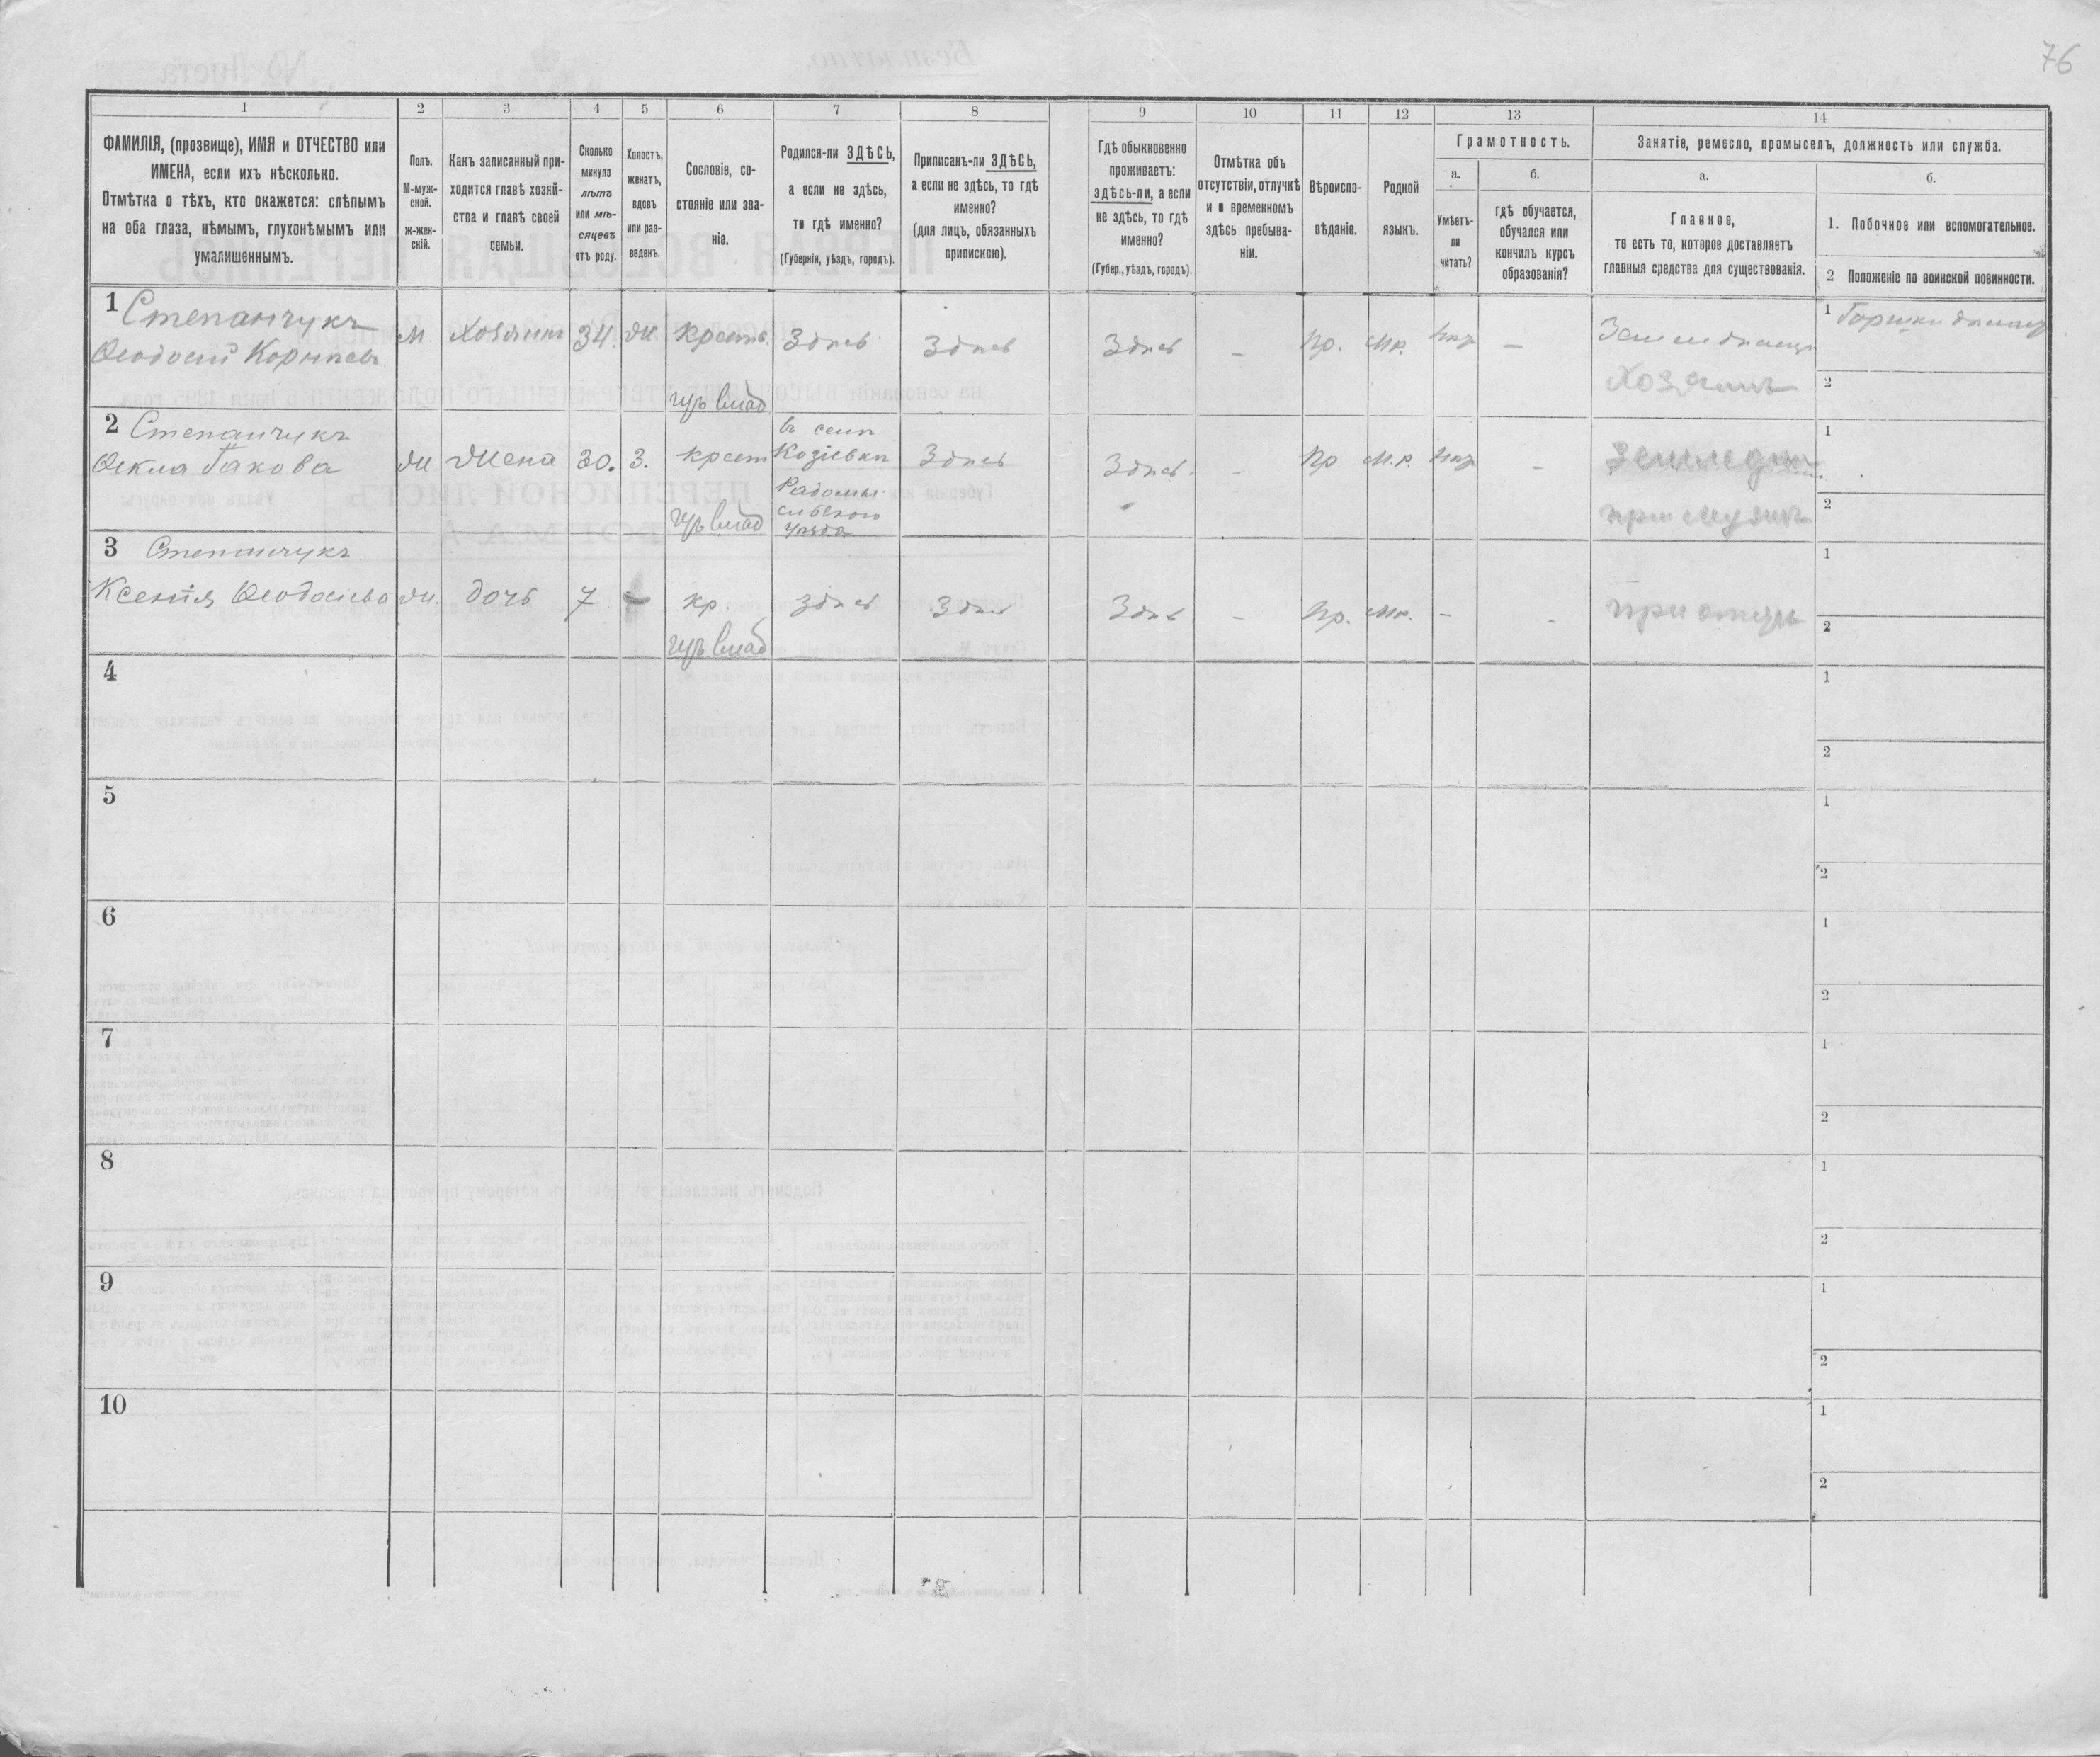 76
1
2
3
4
5
6
7
8
9
10
11
12
13
14
ФАМИЛІЯ, (прозвище), ИМЯ и ОТЧЕСТВО или
ИМЕНА, если ихъ нѣсколько.
Отмѣтка о тѣхъ, кто окажется: слѣпымъ
на оба глаза, нѣмымъ, глухонѣмымъ или
умалишеннымъ.
Полъ.
М-муж-
ской.
ж-жен-
скій.
Какъ записанный при-
ходится главѣ хозяй-
ства и главѣ своей
семьи.
Сколько
минуло
лѣтъ
или мѣ-
сяцевъ
отъ роду.
Холостъ,
женатъ,
вдовъ
или раз-
веденъ.
Сословіе, со-
стояніе или зва-
ніе.
Родился-ли ЗДѢСЬ,
а если не здѣсь,
то гдѣ именно?
(Губернія, уѣздъ, городъ).
Приписанъ-ли ЗДѢСЬ,
а если не здѣсь, то гдѣ
именно?
(для лицъ, обязанныхъ
припискою).
Гдѣ обыкновенно
проживаетъ:
здѣсь-ли, а если
не здѣсь, то гдѣ
именно?
(Губер., уѣздъ, городъ).
Отмѣтка объ
отсутствіи, отлучкѣ
и о временномъ
здѣсь пребыва-
ніи.
Вѣроиспо-
вѣданіе.
Родной
языкъ.
Грамотность.
а.
Умѣетъ-
ли
читать?
б.
гдѣ обучается,
обучался или
кончилъ курсъ
образованія?
Занятіе, ремесло, промыселъ, должность или служба.
а.
Главное,
то есть то, которое доставляетъ
главныя средства для существованія.
б.
1. Побочное или вспомогательное.
2 Положеніе по воинской повинности.
1 Степанчукъ
Ѳеодосій Корнѣевъ
м. Хозяинъ 34. ж. крестъ. Здѣсь Здѣсь Здѣсь – пр. мр. нѣтъ – Земледѣлецъ
Хозяинъ
1
2
2 Степанчукъ
Ѳекла Якова
ж жена 30. з. крест
въ селѣ
Козіевки
Радомы-
сльскаго
уѣзда
Здѣсь Здѣсь. – пр. м.р. нѣтъ –
при мужѣ
1
2
3 Степанчукъ
Ксенія Ѳеодосіева ж. дочь 7 – кр. здѣсь Здѣсь Здѣсь – пр. мр. – – при отцѣ
1
2
4
1
2
5
1
2
6
1
2
7
1
2
8
1
2
9
1
2
10
1
2